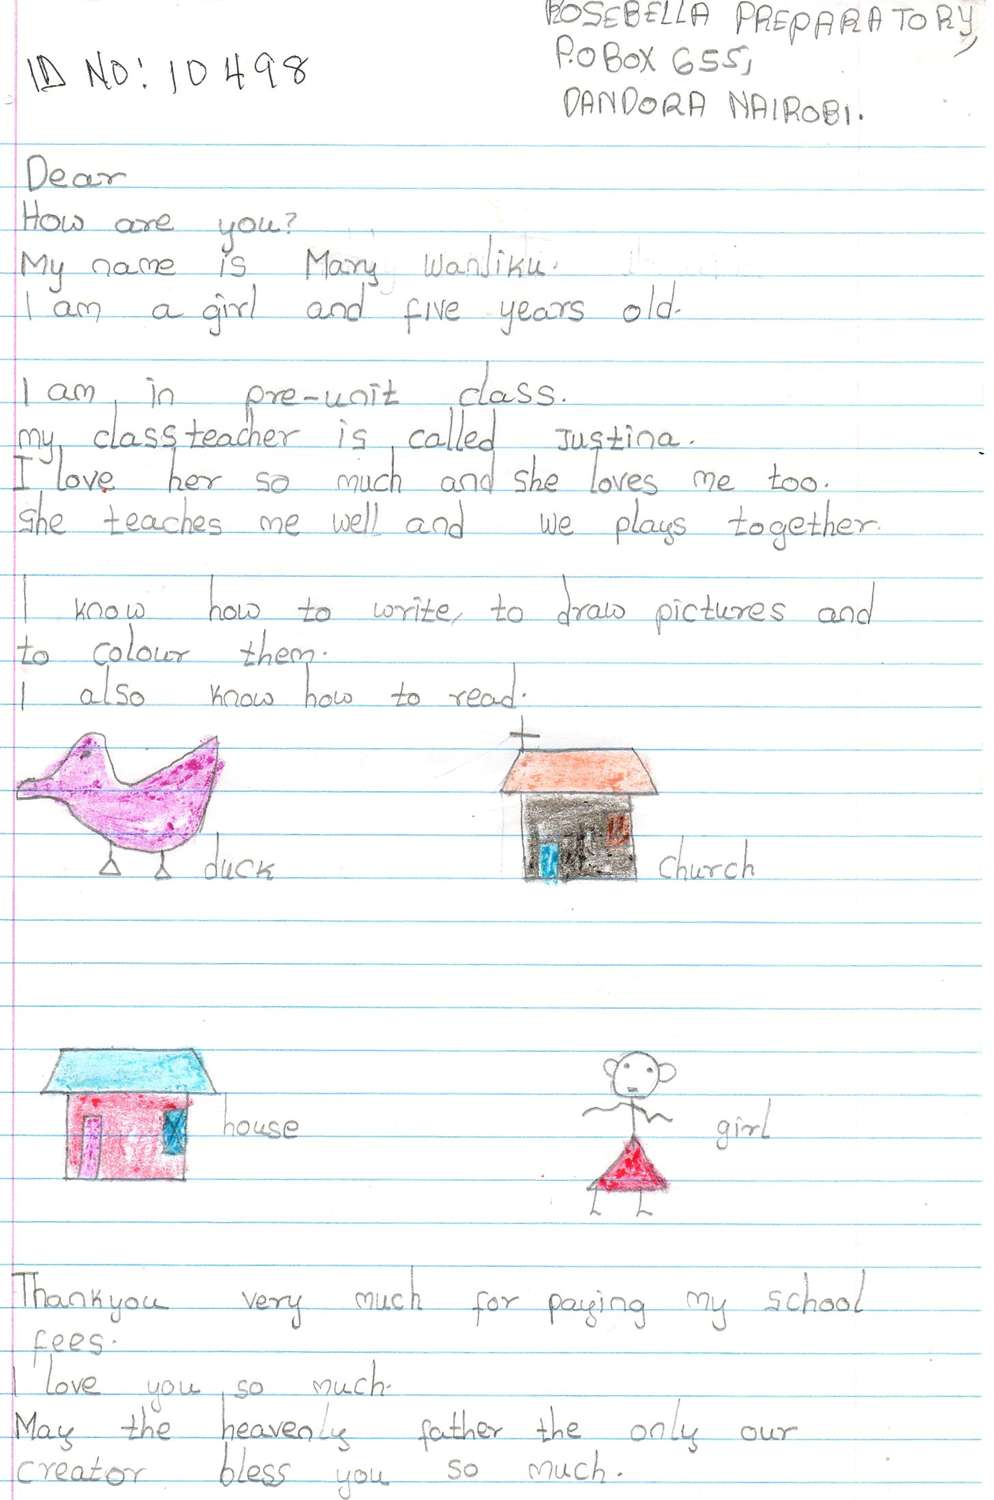 ROSEBELLA PREPARATORY,
P.O BOX 655,
DANDORA NAIROBI.
ID NO: 10498
Dear
How are you?
My name is Mary Wanjiku.
I am a girl and five years old.
I am in pre-unit class.
my class teacher is called Justina.
I love her so much and she loves me too.
She teaches me well and we plays together.
I know how to write, to draw pictures and
to colour them.
I also know how to read.
duck
church
house
girl
Thankyou very much for paying my school
fees.
I love you so much.
May the heavenly father the only our
creator bless you so much.